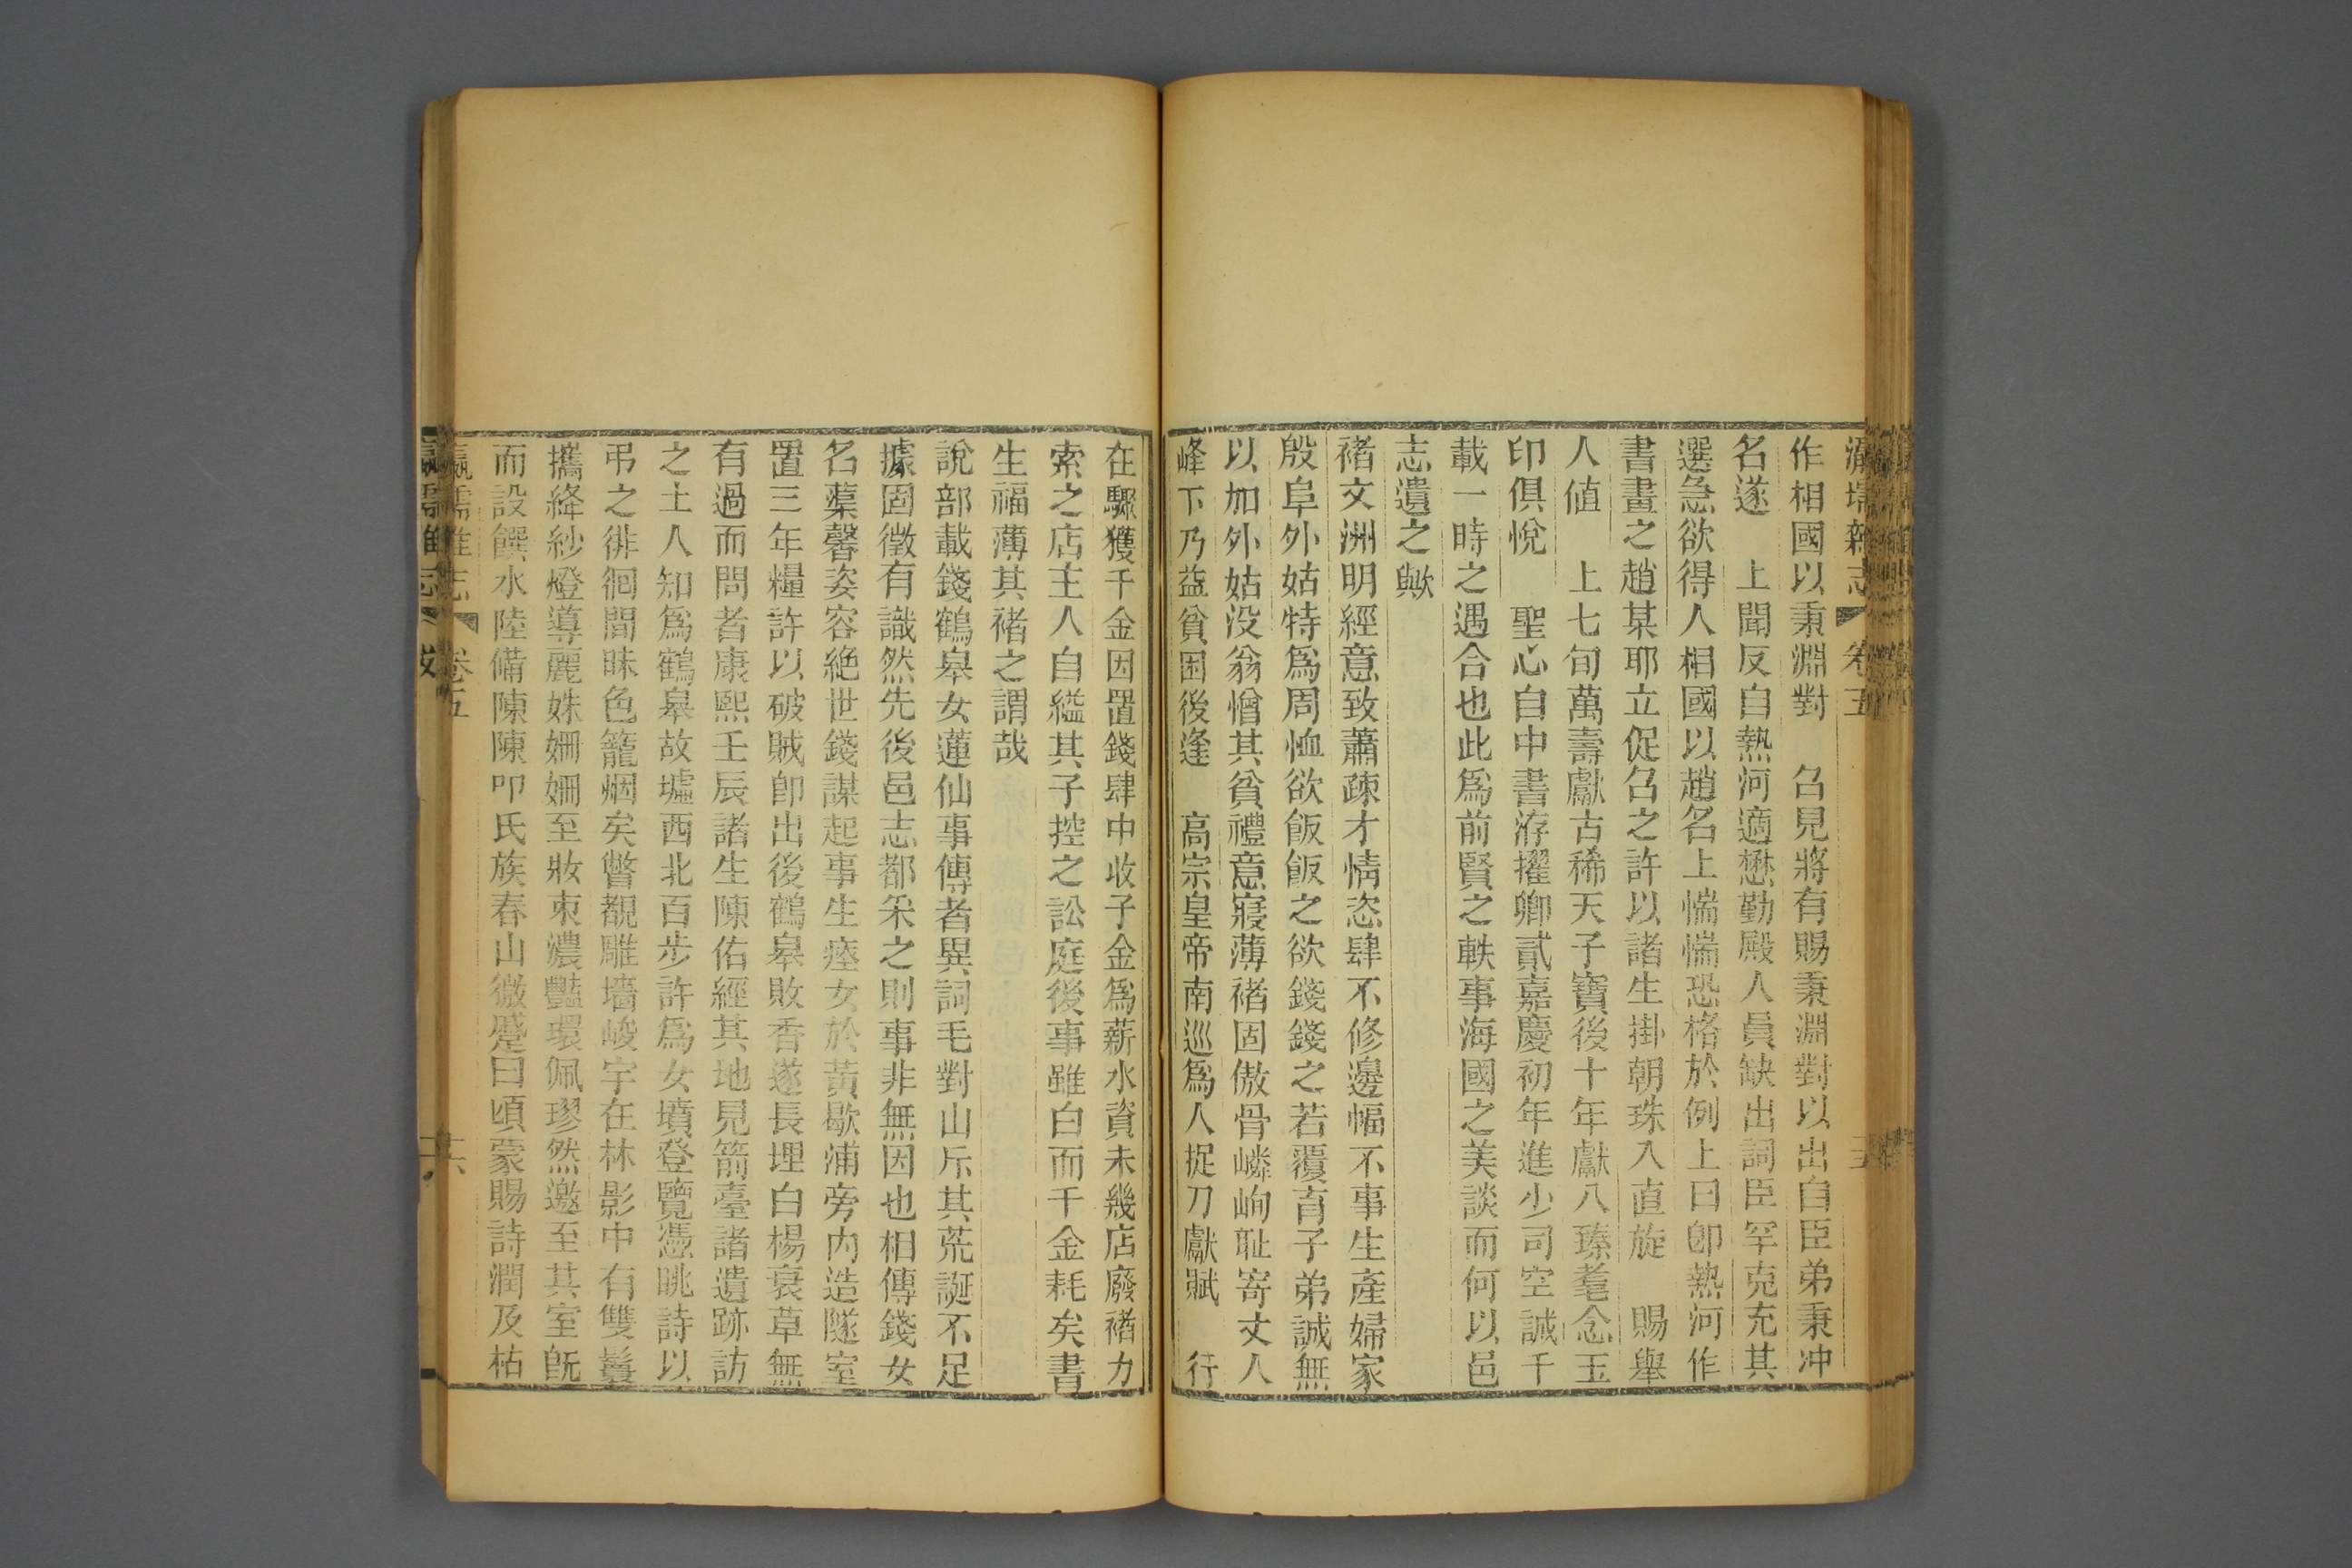 瀛壖雜志 卷五
作相國以秉淵對　召見將有賜秉淵對以出自臣弟秉冲
名遂　上聞反自熱河適懋勤殿人員缺出詞臣罕克充其
選急欲得人相國以趙名上惴惴恐格於例上曰卽熱河作
書畫之趙某耶立促召之許以諸生掛朝珠入直旋　賜舉
人値　上七旬萬壽獻古稀天子寶後十年獻八瑧耄念玉
印俱悅　聖心自中書洊擢卿貳嘉慶初年進少司空誠千
載一時之遇合也此爲前賢之軼事海國之美談而何以邑
志遺之歟
褚文洲明經意致蕭疎才情恣肆不修邊幅不事生產婦家
殷阜外姑特爲周恤欲飯飯之欲錢錢之若覆育子弟誠無
以加外姑没翁憎其貧禮意寢薄褚固傲骨嶙峋耻寄丈人
峰下乃益貧困後逢　高宗皇帝南巡爲人捉刀獻賦　行
在驟獲千金因置錢肆中收子金爲薪水資未幾店廢褚力
索之店主人自縊其子控之訟庭後事雖白而千金耗矣書
生福薄其褚之謂哉
說部載錢鶴皋女蓮仙事傳者異詞毛對山斥其荒誕不足
據固徵有識然先後邑志都采之則事非無因也相傳錢女
名蕖馨姿容絶世錢謀起事生瘞女於黃歇浦旁内造隧室
置三年糧許以破賊卽出後鶴皋敗香遂長埋白楊衰草無
有過而問者康熙壬辰諸生陳佑經其地見箭臺諸遺跡訪
之土人知爲鶴皋故墟西北百步許爲女墳登覽憑眺詩以
弔之徘徊間昧色籠烟矣瞥覩雕墻峻宇在林影中有雙鬟
攜絳紗燈導麗姝姍姍至妝束濃豔環佩璆然邀至其室旣
而設饌水陸備陳陳叩氏族春山微蹙曰頃蒙賜詩潤及枯
瀛壖雜志 卷五 十六